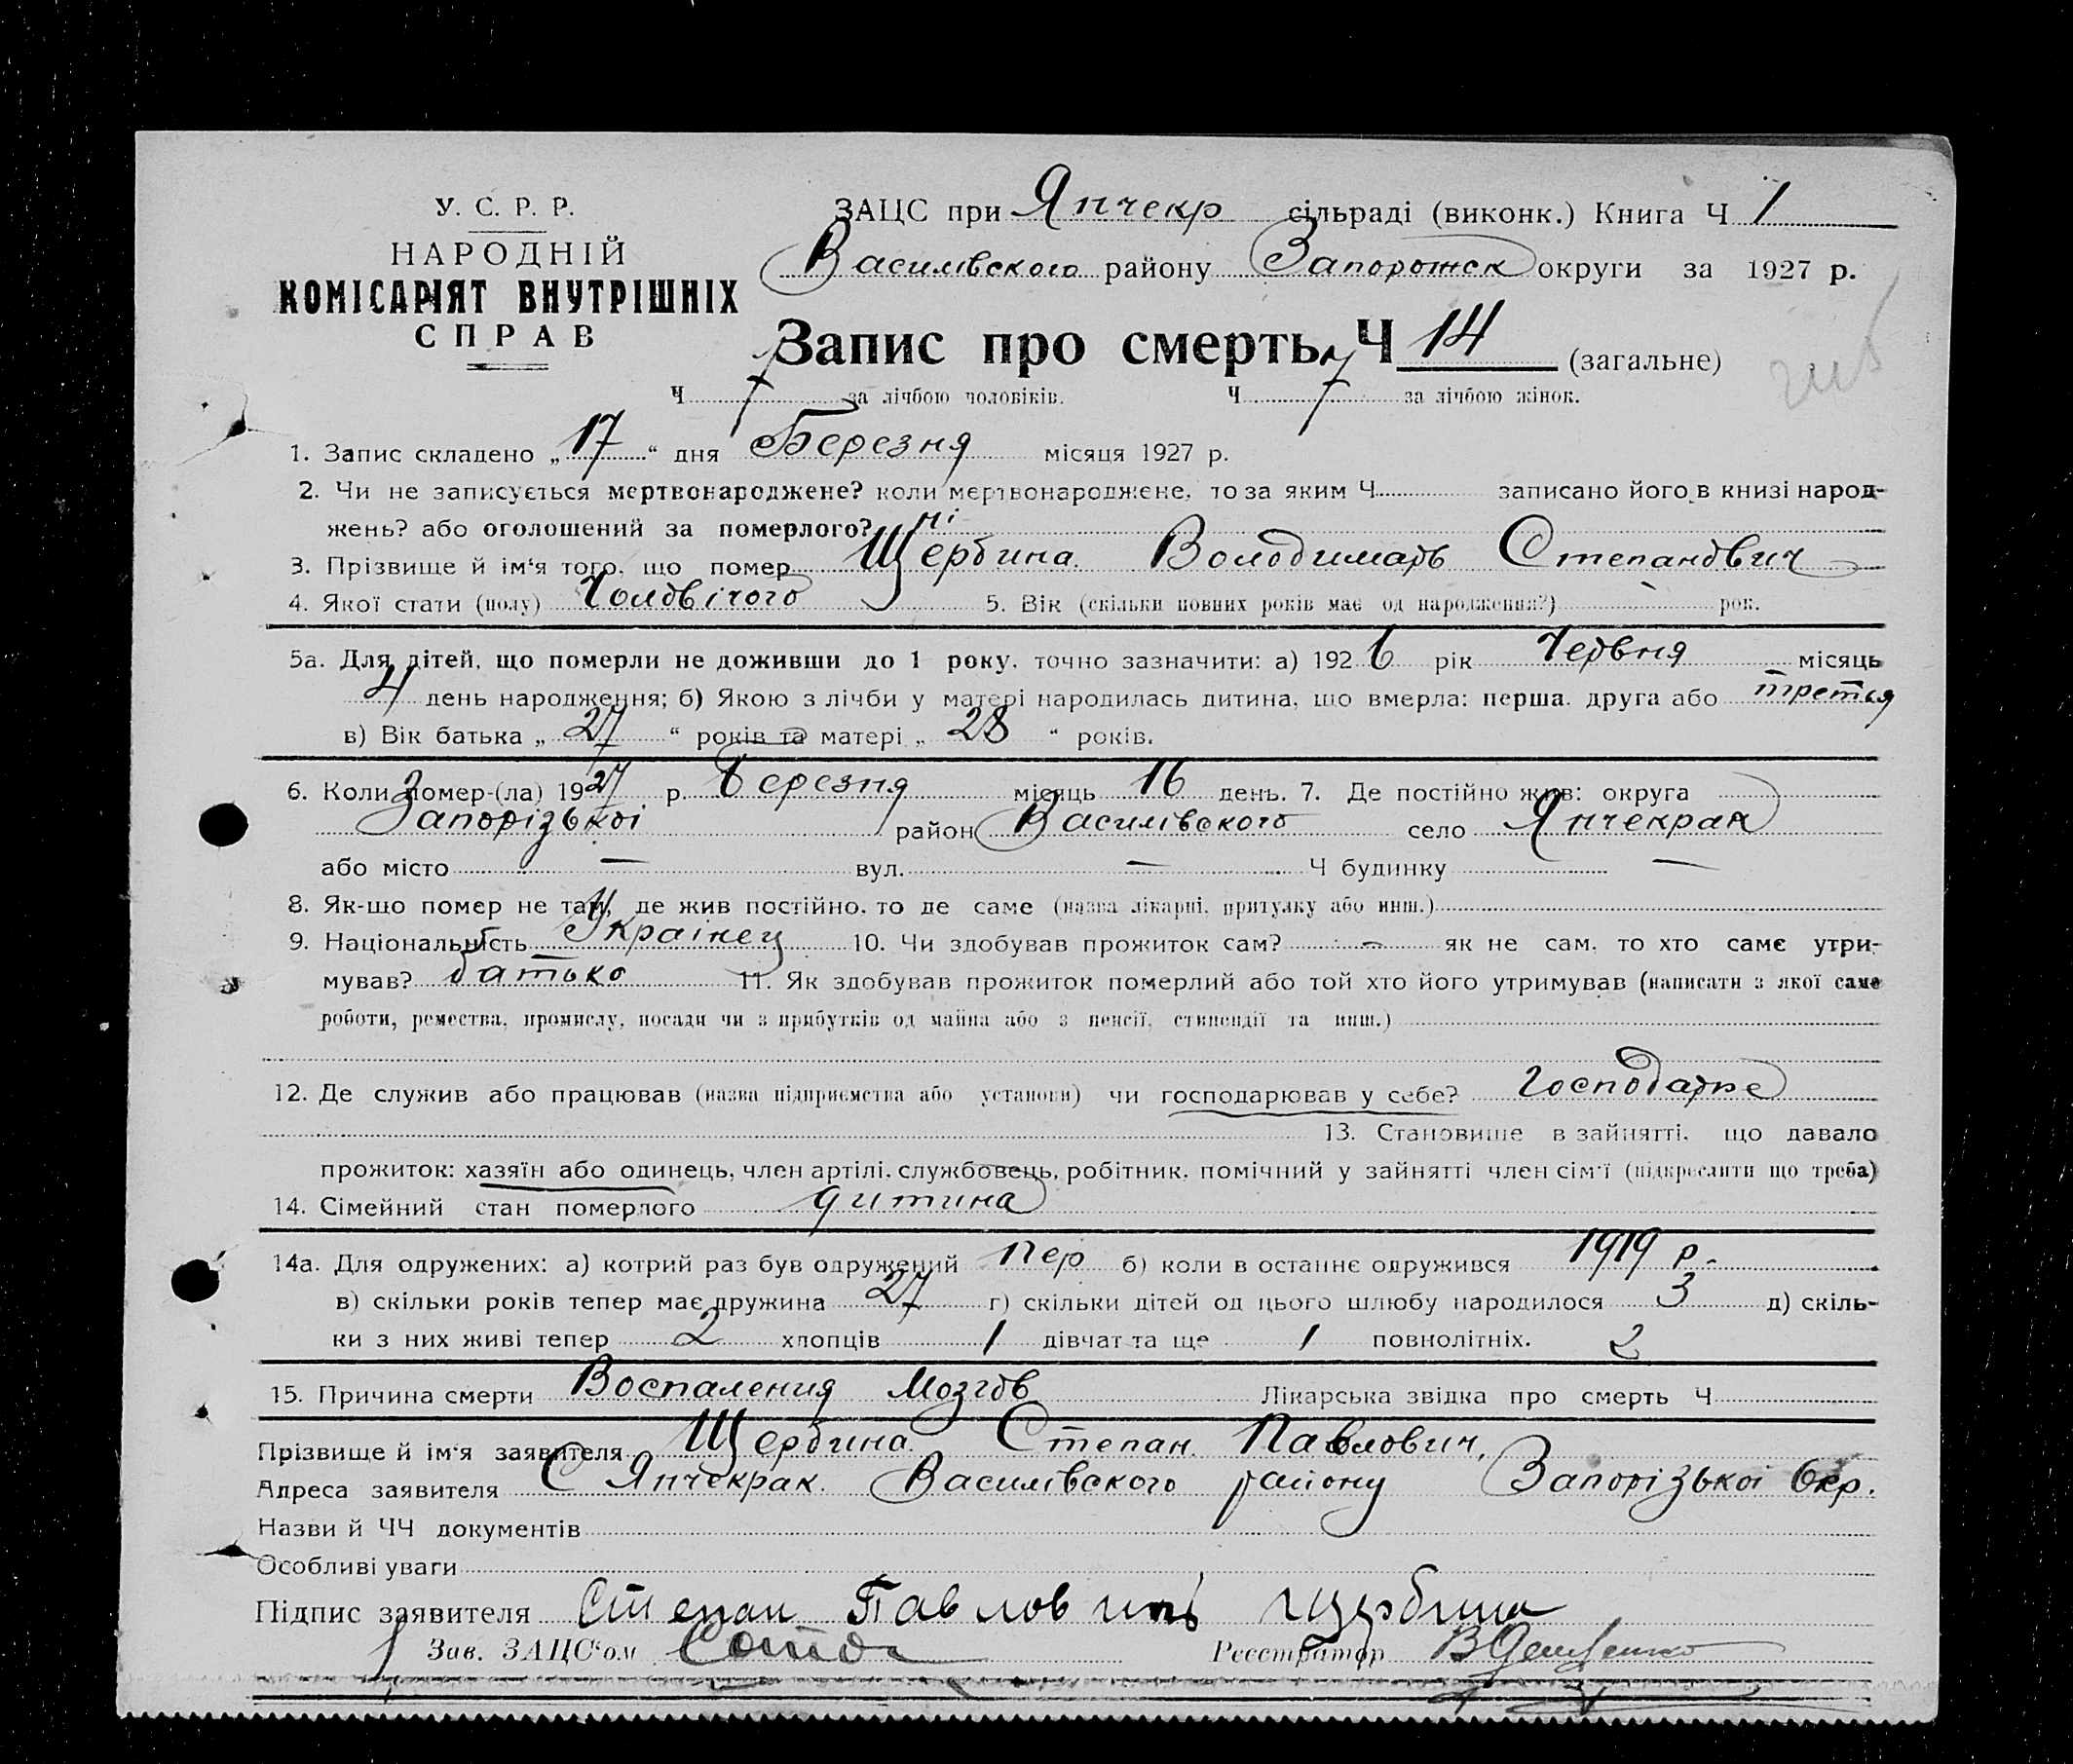 У. С. Р. Р.
НАРОДНІЙ
КОМІСАРІЯТ ВНУТРІШНІХ
СПРАВ
ЗАЦС при Япчекр сільраді (виконк.) Книга Ч 1
Василівского району Запорожск округи за 1927 р.
Запис про смерть Ч 14 (загальне)
Ч 7 за лічбою чоловіків. Ч 7 за лічбою жінок.
1. Запис складено „17“ дня Березня місяця 1927 р.
2. Чи не записується мертвонароджене? коли мертвонароджене, то за яким Ч. записано його в книзі народ-
жень? або оголошений за померлого? ні
3. Прізвище й ім‘я того, що помер Щербина Володимарь Степанович
4. Якої стати (полу) Чоловічого 5. Вік (скільки повних років має од народження?) рок.
5а. Для дітей, що померли не доживши до 1 року, точно зазначити: а) 1926 рік Червня місяць
4 день народження; б) Якою з лічби у матері народилась дитина, що вмерла: перша, друга або третья
в) Вік батька „27“ років та матері „28“ років.
6. Коли помер-(ла) 1927 р. Березня місяць 16 день. 7. Де постійно жив: округа
Запорізькоі район Василівского село Япчекрак
або місто — вул. — Ч будинку —
8. Як-що помер не там, де жив постійно, то де саме (назва лікарні, притулку або инш.)
9. Національність Украінец 10. Чи здобував прожиток сам? — як не сам, то хто саме утри-
мував? батько 11. Як здобував прожиток померлий або той хто його утримував (написати з якої саме
роботи, ремества, промислу, посади чи з прибутків од майна або з пенсії, стипендії та инш.)
12. Де служив або працював (назва підприємства або установи) чи господарював у себе? господарює
13. Становище в зайнятті, що давало
прожиток: хазяїн або одинець, член артілі, службовець, робітник, помічний у зайнятті член сім‘ї (підкреслити що треба)
14. Сімейний стан померлого дитина
14а. Для одружених: а) котрий раз був одружений пер б) коли в останнє одружився 1919 р.
в) скільки років тепер має дружина 27 г) скільки дітей од цього шлюбу народилося 3 д) скіль-
ки з них живі тепер 2 хлопців 1 дівчат та ще 1 повнолітніх. 2
15. Причина смерти Воспаления Мозгов Лікарська звідка про смерть Ч
Прізвище й ім‘я заявителя Щербина Степан Павлович,
Адреса заявителя С Япчекрак Василівского району Запорізькоі Окр.
Назви й ЧЧ документів
Особливі уваги
Підпис заявителя Степан Павлович Щербина
Зав. ЗАЦС‘ом Реєстратор